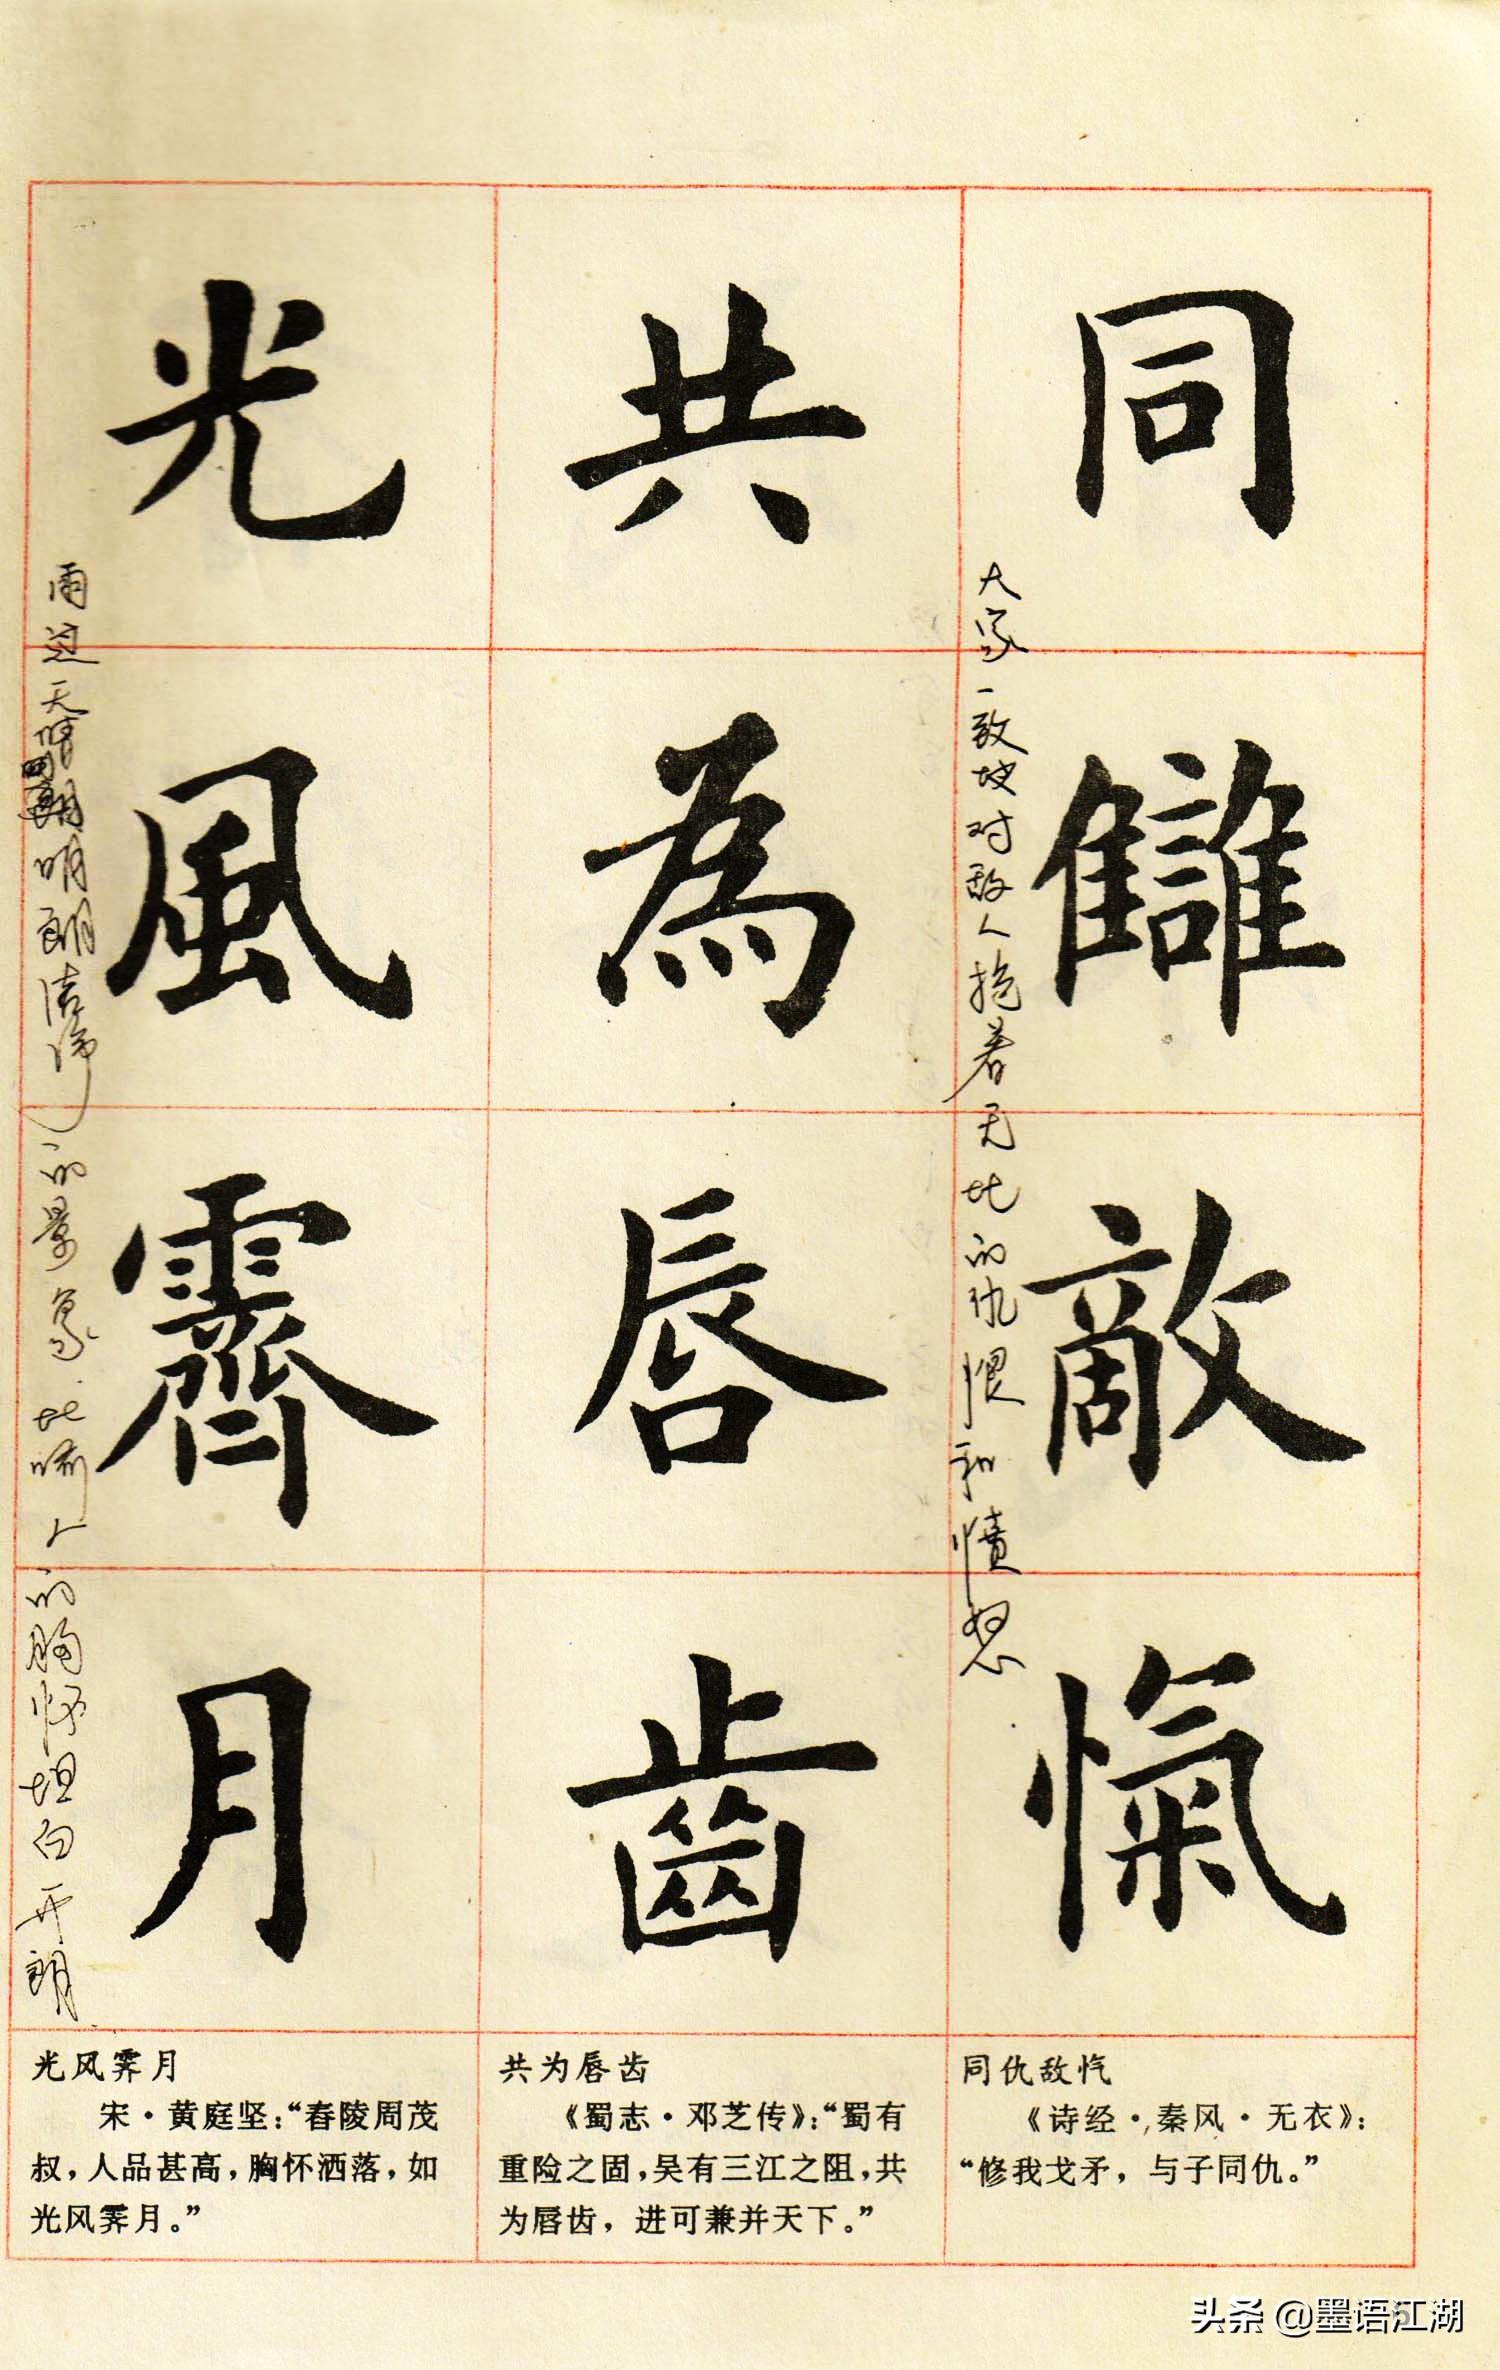 同讎敵愾
大家一致地对敌人抱着无比的仇恨和愤怒
共為唇齒
光風霽月
雨过天晴
明朗洁净的景象.比喻人的胸怀坦白开朗.
同仇敌忾
《诗经·秦风·无衣》：
“修我戈矛，与子同仇。”
共为唇齿
《蜀志·邓芝传》：“蜀有
重险之固，吴有三江之阻，共
为唇齿，进可兼并天下。”
光风霁月
宋·黄庭坚：“舂陵周茂
叔，人品甚高，胸怀洒落，如
光风霁月。”
头条 @墨语江湖